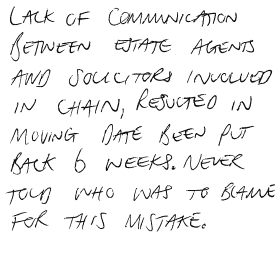 LACK OF COMMUNICATION
BETWEEN ESTATE AGENTS
AND SOLICITORS INVOLVED
IN CHAIN, RESULTED IN
MOVING DATE BEEN PUT
BACK 6 WEEKS. NEVER
TOLD WHO WAS TO BLAME
FOR THIS MISTAKE.